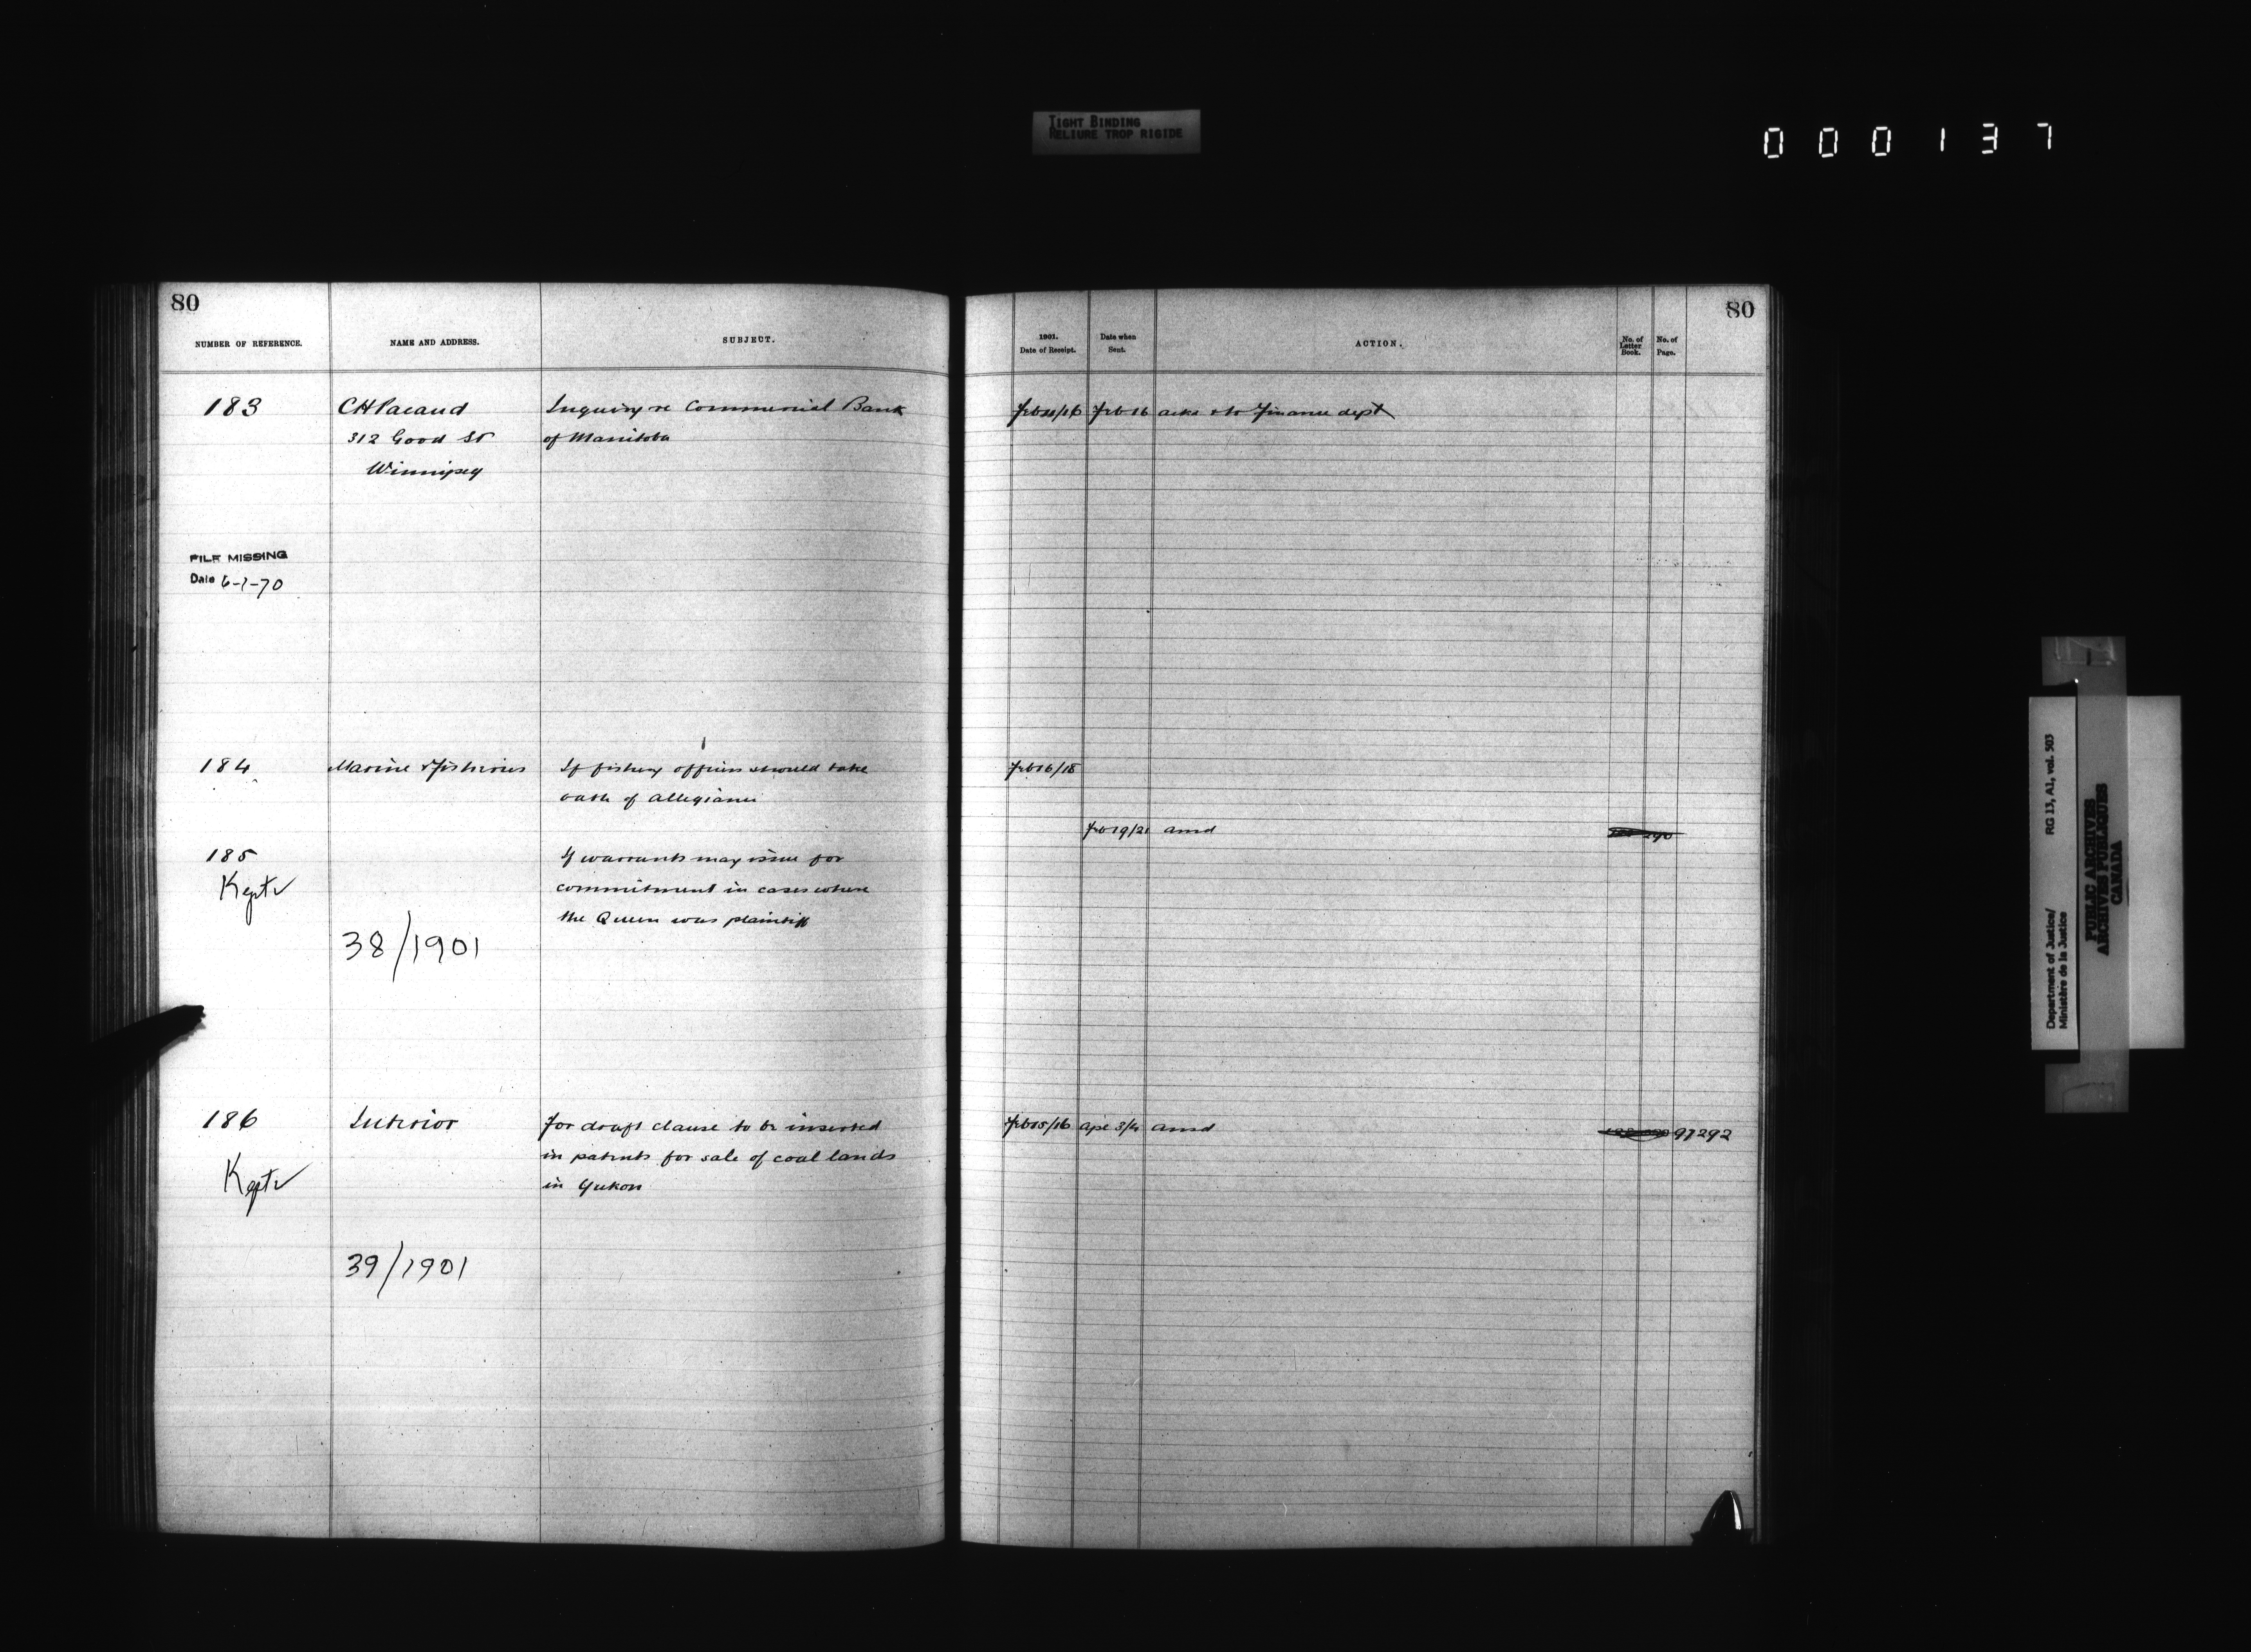 TIGHT BINDING
RELIURE TROP RIGIDE
000137
80
NUMBER OF REFERENCE. NAME AND ADDRESS. SUBJECT.
183 CH Pacaud Inquiry re Commercial Bank
312 Good St of Manitoba
Winnipeg
FILE MISSING
Date 6-7-70
184 Marine & Fisheries If fishery officers should take
oath of allegiance
185 If warrants may issue for
Kept commitment in cases where
the Queen was plaintiff
38/1901
186 Interior For draft clause to be inserted
in patents for sale of coal lands
Kept in Yukon
39/1901
80
1901. Date of Receipt. Date when Sent. ACTION. No. of Letter Book. No. of Page.
Feb 16 ackd & to Finance dept
Feb 16/18
Feb 19/21 ansd
Feb 15/16 Apl 3/4 ansd 97292
Department of Justice/ RG 13, A1, vol. 503
Ministère de la Justice
PUBLIC ARCHIVES
ARCHIVES PUBLIQUES
CANADA